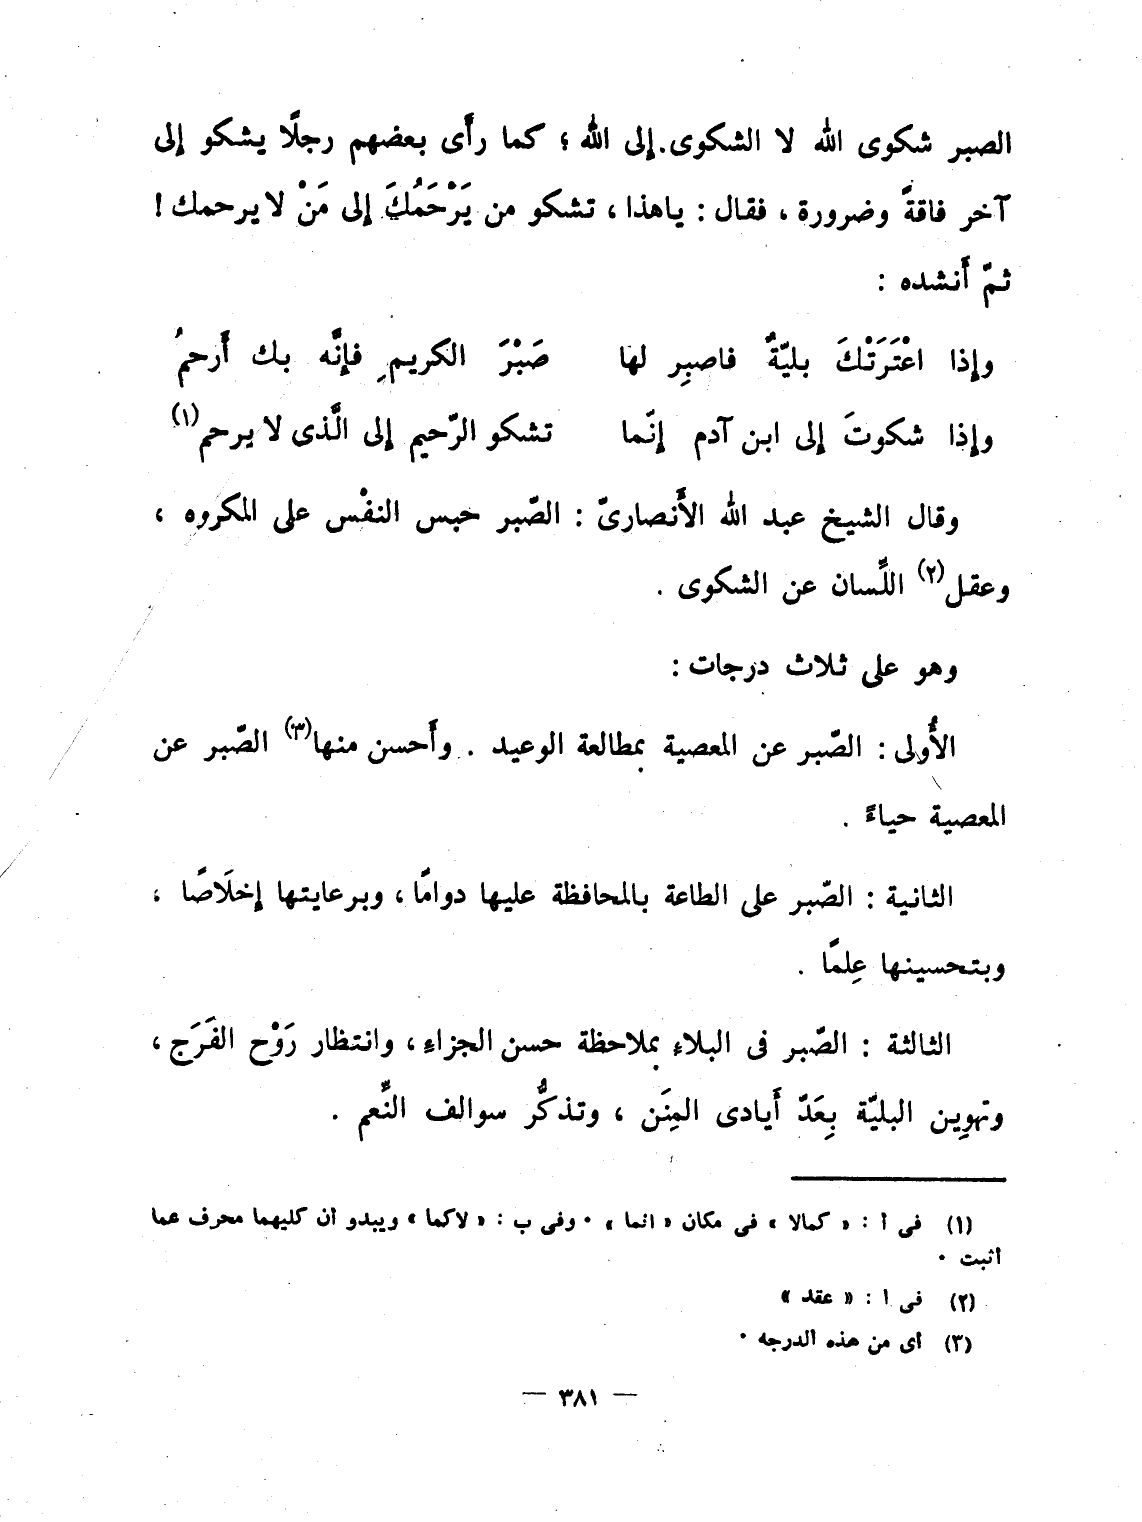 الصبر شكوى الله لا الشكوى.إلى الله ؛ كما رأَى بعضهم رجلًا يشكو إلى
آخر فاقةً وضرورة ، فقال : ياهذا ، تشكو من يَرْحَمُكَ إلى مَنْ لا يرحمك !
ثمّ أَنشده :
وإذا اعْتَرَتْكَ بليّةٌ فاصبِر لها صَبْرَ الكريمِ فإنَّه بك أَرحمُ
وإذا شكوتَ إلى ابن آدم إنّما تشكو الرّحيم إلى الَّذى لا يرحم(١)
وقال الشيخ عبد الله الأَنصارىّ : الصّبر حبس النفْس على المكروه ،
وعقل(٢) اللِّسان عن الشكوى .
وهو على ثلاث درجات :
الأُولى : الصّبر عن المعصية بمطالعة الوعيد . وأَحسن منها(٣) الصّبر عن
المعصية حياءً .
الثانية : الصّبر على الطاعة بالمحافظة عليها دوامًا ، وبرعايتها إخلَاصًا ،
وبتحسينها عِلمًا .
الثالثة : الصّبر فى البلاءِ بملاحظة حسن الجزاءِ ، وانتظار رَوْح الفَرَج ،
وتهوِين البليّة بِعَدّ أَيادى المِنَن ، وتذكُّر سوالف النِّعم .
(١) فى أ : « كمالا » فى مكان « انما » ٠ وفى ب : « لاكما » ويبدو أن كليهما محرف عما
أثبت ٠
(٢) فى أ : « عقد »
(٣) أى من هذه الدرجه ٠
— ٣٨١ —